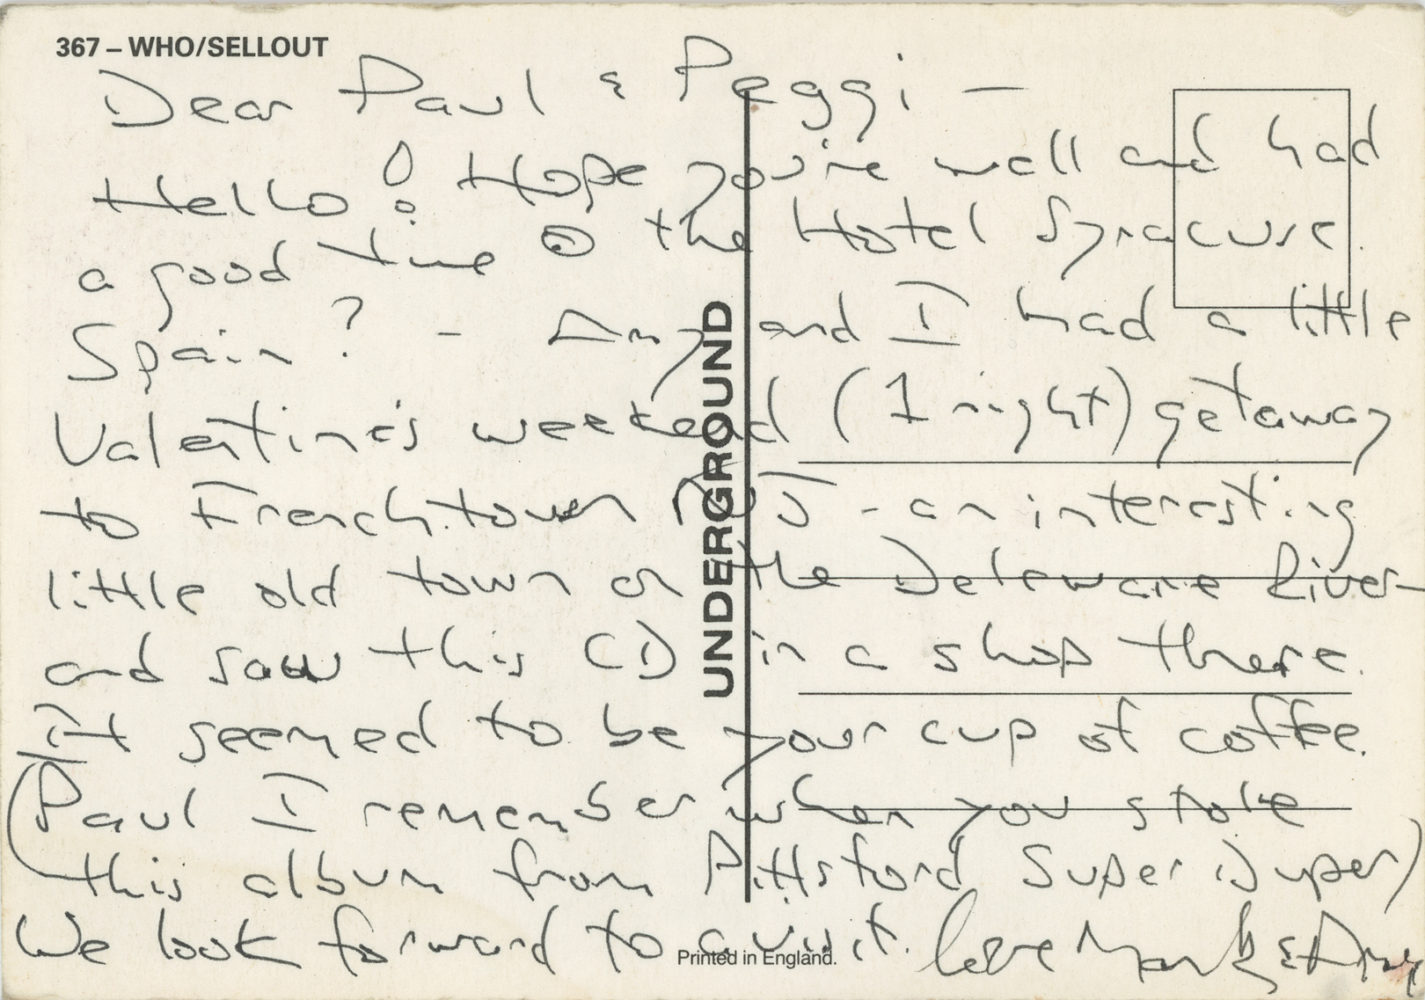 367 – WHO/SELLOUT
Dear Paul & Peggi —
Hello! Hope you're well and had
a good time @ the Hotel Syracuse.
Spain? - Amy and I had a little
Valentine's weekend (1 night) getaway
to Frenchtown NJ - an interesting
little old town on the Deleware River-
and saw this CD in a shop there.
It seemed to be your cup of coffee.
(Paul I remember when you stole
this album from Pittsford Super Duper)
We look forward to a visit. Love Mark & Amy
UNDERGROUND
Printed in England.